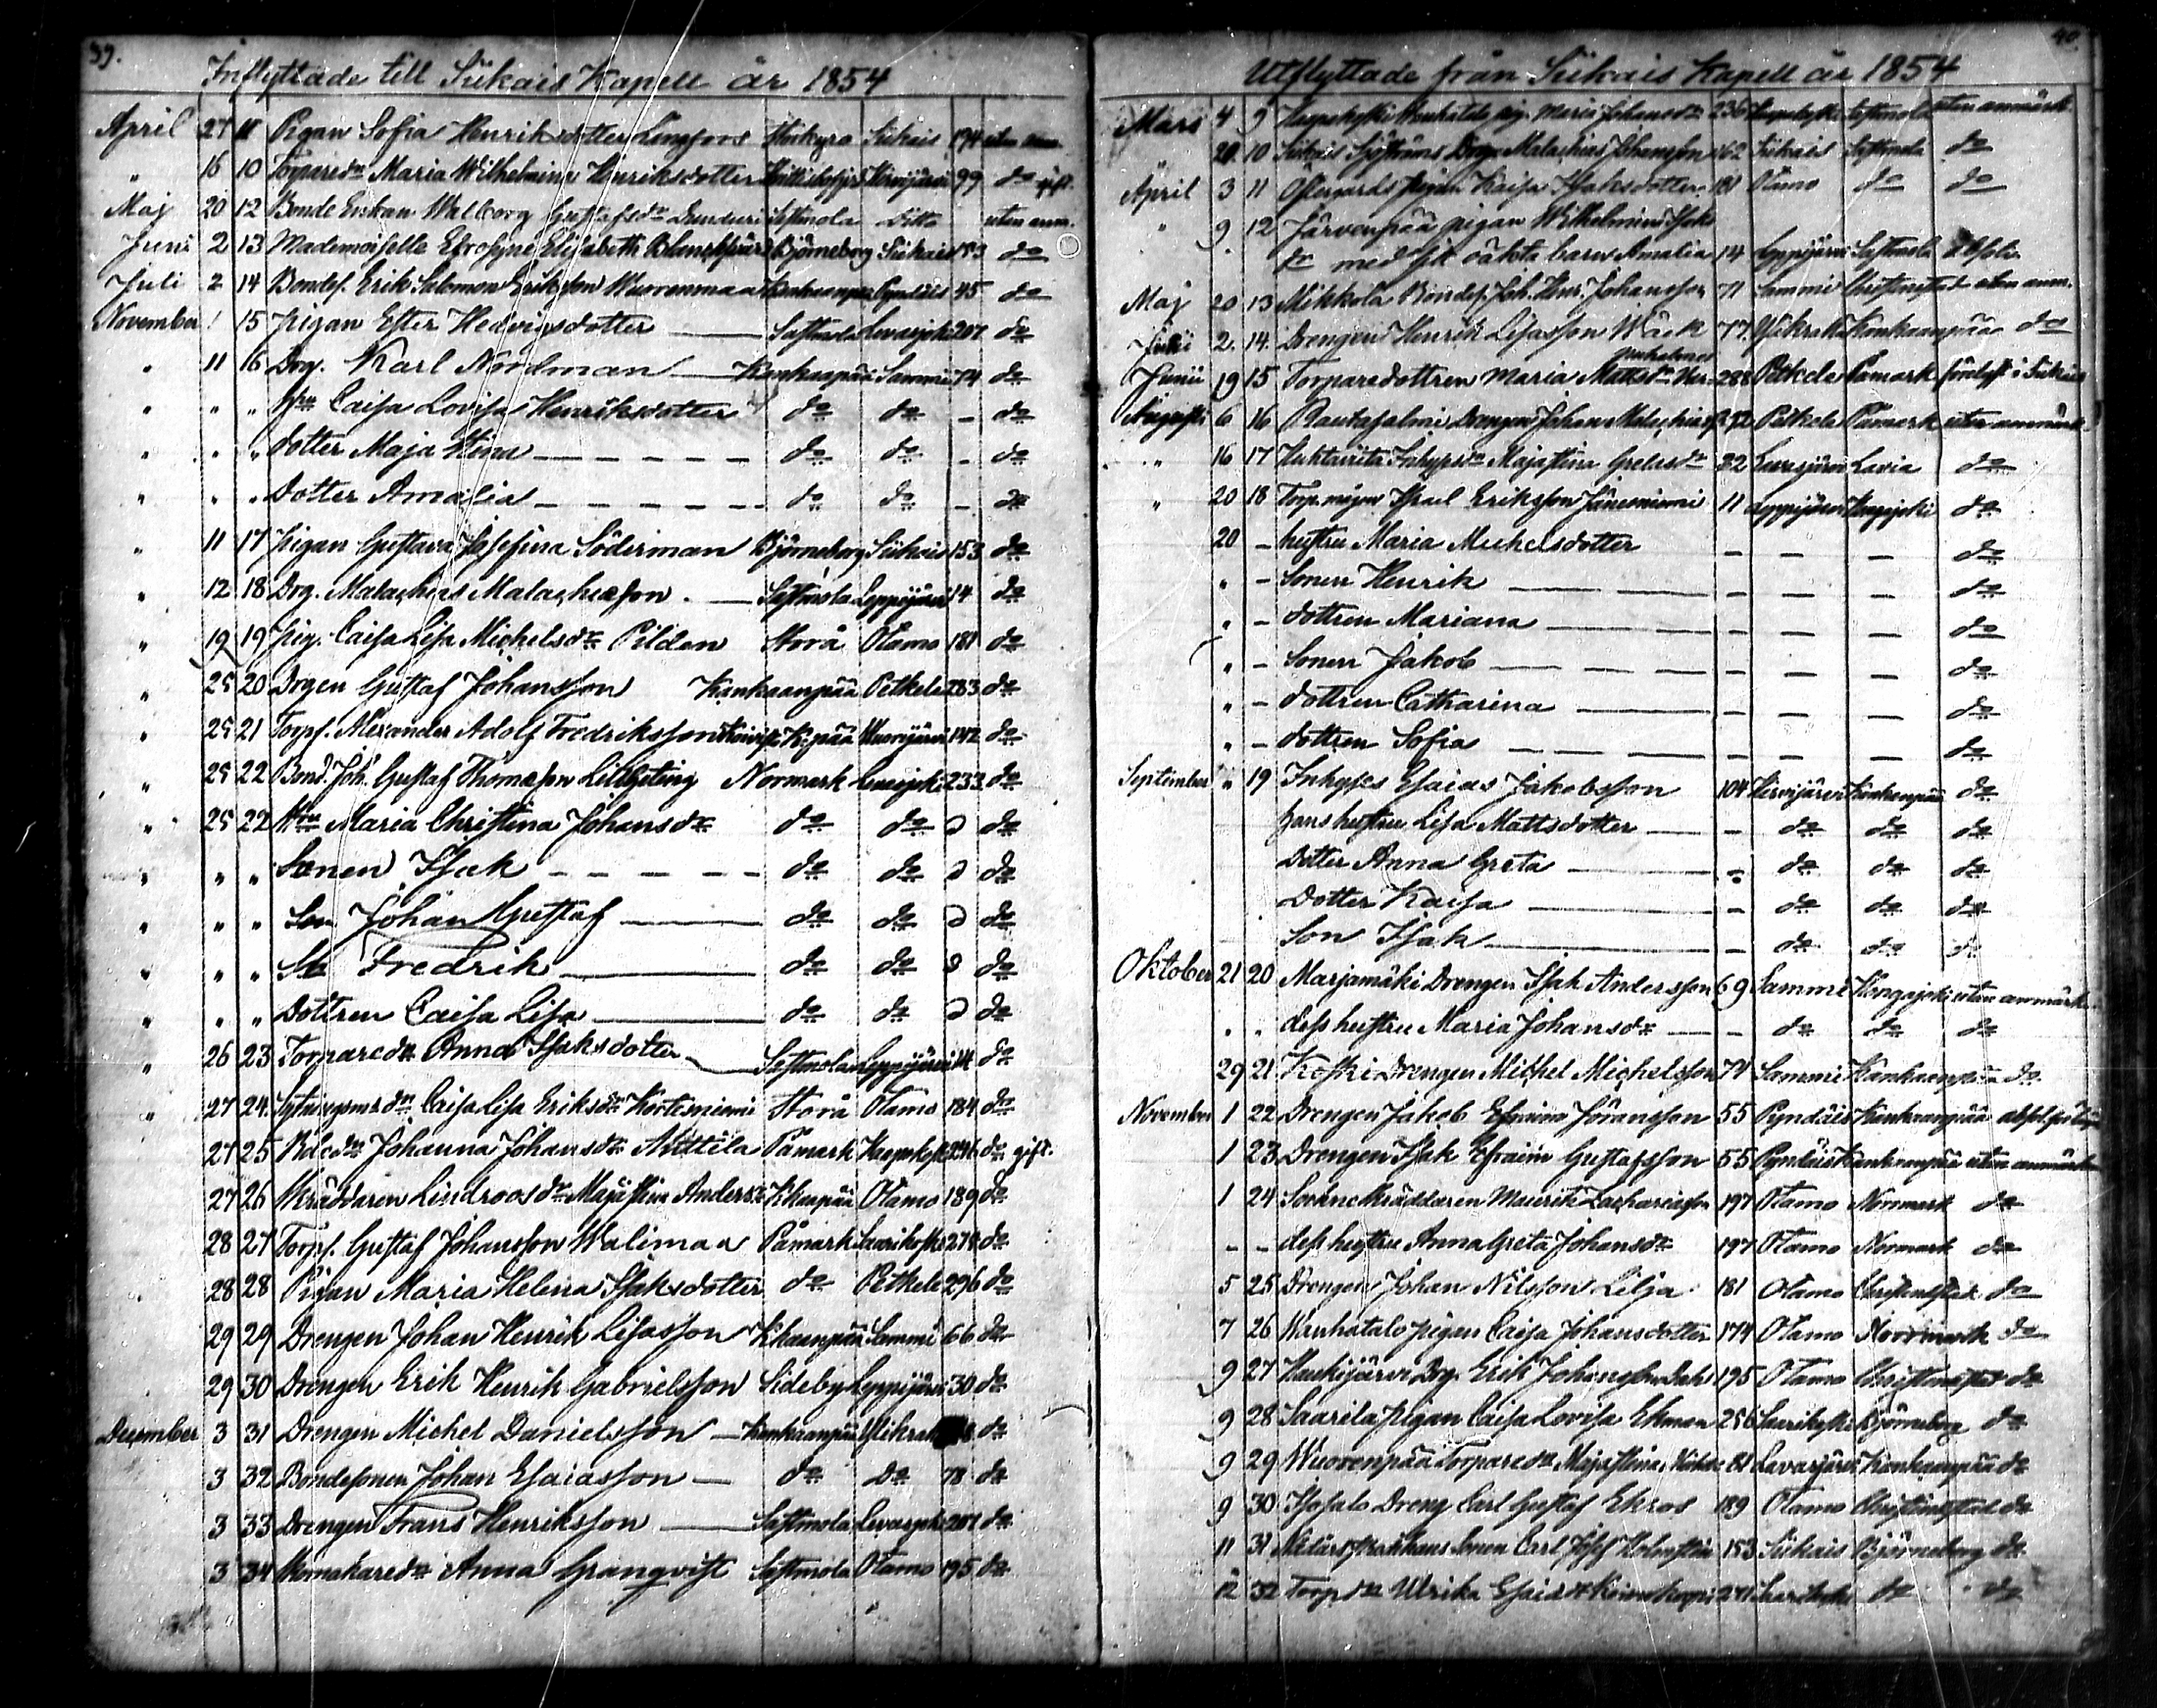 39.
Inflyttade till Siikais Kapell år 1854
April 27 11 Pigan Sofia Henriksdotter Longfors Siikais 194 utan anm.
" 16 10 Torparedr Maria Wilhelmina Henriksdotter Hirvijärvi 99 do gift.
Maj 20 12 Bonde Enkan Walborg Gustafsdr Sastmola Ditto utan anm.
Juni 2 13 Mademoiselle Efrosyne Elisabeth Björneborg Siikais 153 do
Juli 2 14 Bondes. Erik Salomon Eriksson Wuorenmaa Kankaanpää Pyndäis 45 do
November 1 15 pigan Ester Hedvigsdotter Sastmola Levasjoki 207 do
" 11 16 Drg. Karl Nordman Kankaapää Sammi 74 do
" " " Hru Caisa Lovisa Henriksdotter do do - do
" " " dotter Maja Stina do do - do
" " " Dotter Amalia do do - do
" 11 17 pigan Gustava Josefina Söderman Björneborg Siikais 153 do
" 12 18 Drg. Malachias Malachiasson Sastmola Leppijärvi 14 do
" 19 19 pig. Caisa Lisa Michelsdr Pildan Storå Otamo 181 do
" 25 20 Drgen Gustaf Johansson Kankaanpää Petkele 283 do
" 25 21 Torps. Alexander Adolf Fredriksson K:pää Wuorijärvi 142 do
" 25 22 Bond. Joh. Gustaf Thomasson Normark Levasjoki 233 do
" 25 22 Hru Maria Christina Johansdr do do d do
" " " Sonen Isak do do d do
" " " Son Johan Gustaf do do d do
" " " So Fredrik do do d do
" " " Dottren Caisa Lisa do do d do
" 26 23 Torparedr Anna Isaksdotter Sastmola Leppijärvi 14 do
" 27 24 Caisa Lisa Eriksdr Kortesniemi Storå Otamo 184 do
27 25 Johanna Johansdr Mattila Påmark 246 do gift.
27 26 Skräddaren Lindroos dr Majastina Andersdr K:kanpää Otamo 189 do
28 27 Torps. Gustaf Johansson Walimaa Påmark Saarikoski 278 do
28 28 Pigan Maria Helena Isaksdotter do Petkele 296 do
29 29 Drengen Johan Henrik Lisasson K:kaanpää Sammi 66 do
29 30 Drengen Erik Henrik Gabrielsson Sideby Leppijärvi 30 do
December 3 31 Drengen Michel Danielsson Kankaanpää do
3 32 Bondesonen Johan Esaiasson do Do 78 do
3 33 Drengen Frans Henriksson Sastmola Levasjoki 207 do
3 34 Anna Granqvist Sastmola Otamo 195 do
40.
Utflyttade från Siikais Kapell år 1854
Mars 4 9 pig. Maria Johansdr 236 Sastmola utan anmärk.
20 10 Siikais Sjöströms Drg. Malachias Johansson 162 Siikais Sastmola do
April 3 11 Östergårds pigan Kaisa Isaksdotter 181 Otamo do do
" 9 12 Järvenpää pigan Wilhelmina Isaks
dr med sitt oäkta barn Amalia 14 Leppijärvi Sastmola absolv.
Maj 20 13 Mikkola Bondes. Joh. Henr. Johansson 71 Sammi Christinestad utan anm.
Juni 2. 14. Drengen Henrik Lisasson Wäck 77. Kankaanpää do
Junii 19 15 Torparedottren Maria Mattsdr 288 Petkele Påmark förlyst i Siikais
Augusti 6 16 Rautasalmi Drengen Johan Malachiass. 292 Petkele Påmark utan anmärk.
" 16 17 Inhysdr Majastina 32 Leppijärvi Lavia do
" 20 18 Torp. mågen Isael Eriksson Jänesniemi 11 Leppijärvi Hongojoki do
20 - hustru Maria Michelsdotter - - - do
" - Sonen Henrik - - - do
" - dottren Mariana - - - do
" - Sonen Jakob - - - do
" - dottren Catharina - - - do
" - dottren Sofia - - - do
September " 19 Inhyses Esaias Jakobsson 104 Hirvijärvi Kankenpää do
hans hustru Lisa Mattsdotter - do do do
Dotter Anna Greta - do do do
Dotter Kaisa - do do do
Son Isak - do do do
Oktober 21 20 Marjamäki Drengen Isak Andersson 69 Sammi Hongojoki utan anmärk.
" " dess hustru Maria Johansdr - do do do
29 21 Koski Drengen Michel Michelsson 74 Sammi Kankaanpää do
November 1 22 Drengen Jakob Efraim Göransson 55 Pyndäis Kankaanpää
1 23 Drengen Isak Efraim Gustafsson 55 Pyndäis Kankaanpää utan anmärk
1 24 Sockneskräddaren Maurits Zachariasson 197 Otamo Normark do
- - dess hustru Anna Greta Johansdr 197 Otamo Normark do
5 25 Drengen Johan Nilsson Lilja 181 Otamo Christinestad do
7 26 Wanhatalo pigan Caisa Johansdotter 174 Otamo Norrmark do
9 27 Haukijärvi Drg. Erik Johansson Dahl 195 Otamo Christinestad do
9 28 Saarila pigan Caisa Lovisa Ekman 256 Saarikoski Björneborg do
9 29 Wuorenpää Torparedr Majastina 81 Lavajärvi Kankaanpää do
9 30 Isotalo Dreng Carl Gustaf Ekros 189 Otamo Christinestad do
11 31 Sonen Carl Josef Holmsten 153 Siikais Björneborg do
12 32 Torpdr Ulrika Esaiedr 241 do do